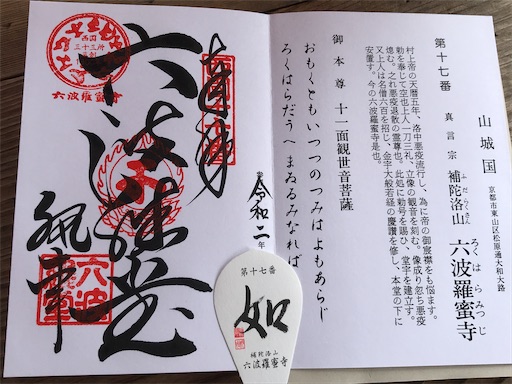 山城国 京都市東山区松原通大和大路
第十七番 真言宗 補陀洛山 六波羅蜜寺
ふだらくさん
ろくはらみつじ
村上帝の天暦五年、洛中悪疫流行し、為に帝の御宸襟をも悩ます。
勅を奉じて空也上人一刀三礼、立像の観音を刻む。像成り忽ち悪疫
熄む。之れ悪疫退散の霊尊也。此処に勅号を賜ひ、堂宇を建立す。
又上人は名僧六百を招じ、金字大般若経の慶讃を修し、本堂の下に
安置す。今の六波羅蜜寺是也。
御本尊 十一面観世音菩薩
おもくともいつつのつみはよもあらじ
ろくはらだうへまゐるみなれば
令和二年
西国
三十三所
六波羅蜜寺
六波羅蜜
第十七番
如
補陀洛山
六波羅蜜寺